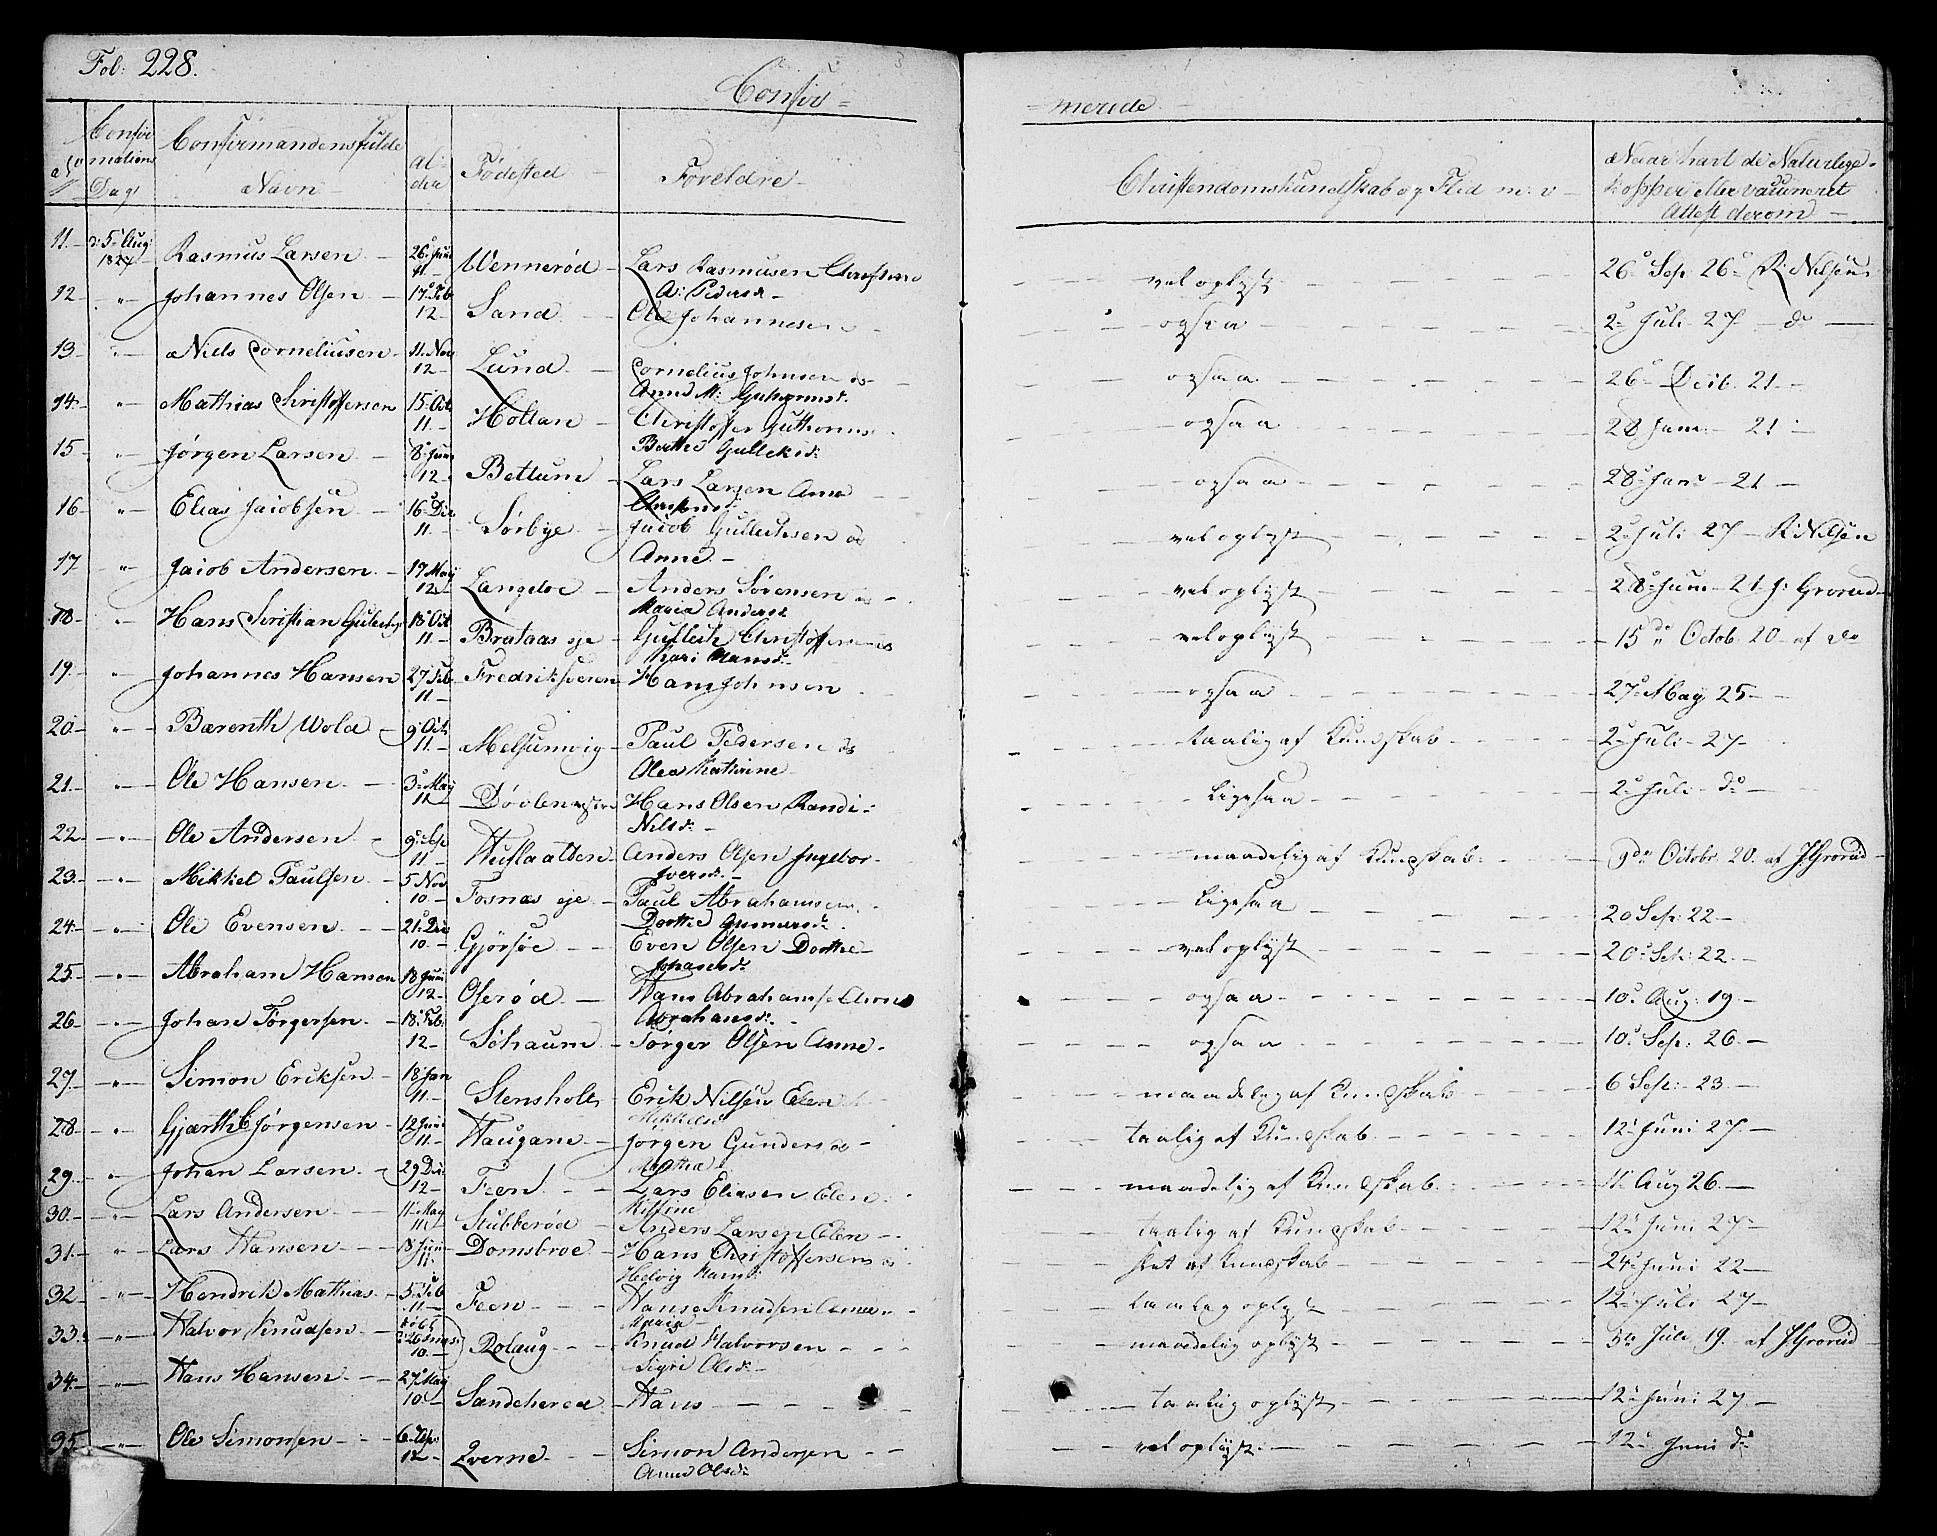 Fol: 228.
Confir= =merede
No Confirmations Dag Confirmandens fulde Navn Alder Fødested Foreldre Christendomskundskab og Flid m: v Naar havt de Naturlige Kopper eller vaccineret Attest derom
11. d: 5 Aug 1827 Rasmus Larsen 26 Juni 11 Wennerød Lars Rasmusen
A: Pedersd vel oplyst 26 Sep. 26 R: Nilsen
12 " Johannes Olsen 17 Feb 12 Sand Ole Johannesen ogsaa 2 Juli 27 do
13 " Niels Corneliusen 11 Nov 12 Lund Cornelius Johnsen
Anne M: ogsaa 26 Decb. 21
14 " Mathias Christoffersen 15 Oct 11 Holtan Christoffer Guthorms
Berthe Gulleksd: ogsaa 28 Juni 21
15 " Jørgen Larsen 8 Juni 12 Bettum Lars Larsen Anne ogsaa 28 Juni 21
16 " Elias Jacobsen 16 Dec 11 Sørbye Jacob Gullechsen
Anne vel oplyst 2 Juli 27 R: Nilsen
17 " Jacob Andersen 17 May 12 Langløe Anders Sørensen
Maria Andersd vel oplyst 28 Juni 21 J: Grorud
18 " Hans Christian 18 Oct 11 Brataas eje Gullich Christoffersen
Kari Hansd: vel oplyst 15de Octob. 20 af do
19. " Johannes Hansen 27 Feb 11 Fredriksveren Hans Johnsen ogsaa 27 May 25
20 " Bærenth Wold 9 Oct 11 Melsumvig Paul Pedersen
Olea Kathrine taalig af Kundskab 2 Juli 27
21. " Ole Hansen 3 May 11 Døvlen Hans Olsen Randi
Nilsd: ligesaa 2 Juli do
22 " Ole Andersen 9 Sep 11 Huflaatten Anders Olsen Ingebor
Iversd: maadelig af Kundskab 9de Octobr. 20. af J Grorud
23. " Mikkel Paulsen 5 Nov 10 Fosnæs eje Paul Abrahamsen
Dorthe Gunnersd: ligesaa 20 Sep: 22
24 " Ole Evensen 21 Dec 10 Gjørsøe Even Olsen Dorthe
Johansd: vel oplyst 20 Sep: 22
25. " Abraham Hansen 18 Juni 12 Oserød Hans Abrahamse Anne
Abrahamsd: ogsaa 10 Aug: 19
26 " Johan Jørgersen 18 Feb: 12 Søhaum Jørger Olsen Anne ogsaa 10 Sep: 26
27 " Simon Eriksen 18 Jan 11 Stensholt Erik Nilsen Elen
Mikkelsd maadelig af Kundskab 6 Sep: 23
28 " Gjærth Jørgensen 12 Juni 11 Haugane Jørgen Gunders
Marthe taalig af Kundskab 12 Juni 27
29. " Johan Larsen 29 Dec 12 Feen Lars Eliasen Elen maadelig af Kundskab 11 Aug 26
30. " Lars Andersen 11 May 11 Stubberød Anders Larsen Elen taalig af Kundskab 12 Juni 27
31. " Lars Hansen 18 Juni 11 Domsbroe Hans Christoffersen
Helvig Hansd: slet af Kundskab 24 Juni 22
32 " Hendrik Mathias 5 Feb 11 Feen Hans Knudsen
Maria taalig oplyst 12 Juli 27
33. " Halvor Knudsen 10 Rolaug Knud Halvorsen
Sigri Olsd: maadelig oplyst Juli 19. af J Grorud
34. " Hans Hansen 27 May 10 Sandehered Hans taalig oplyst 12 Juni 27
35 " Ole Simonsen 6 12 Qverne Simon Andersen
Anne Olsd: vel oplyst 12 Juni do